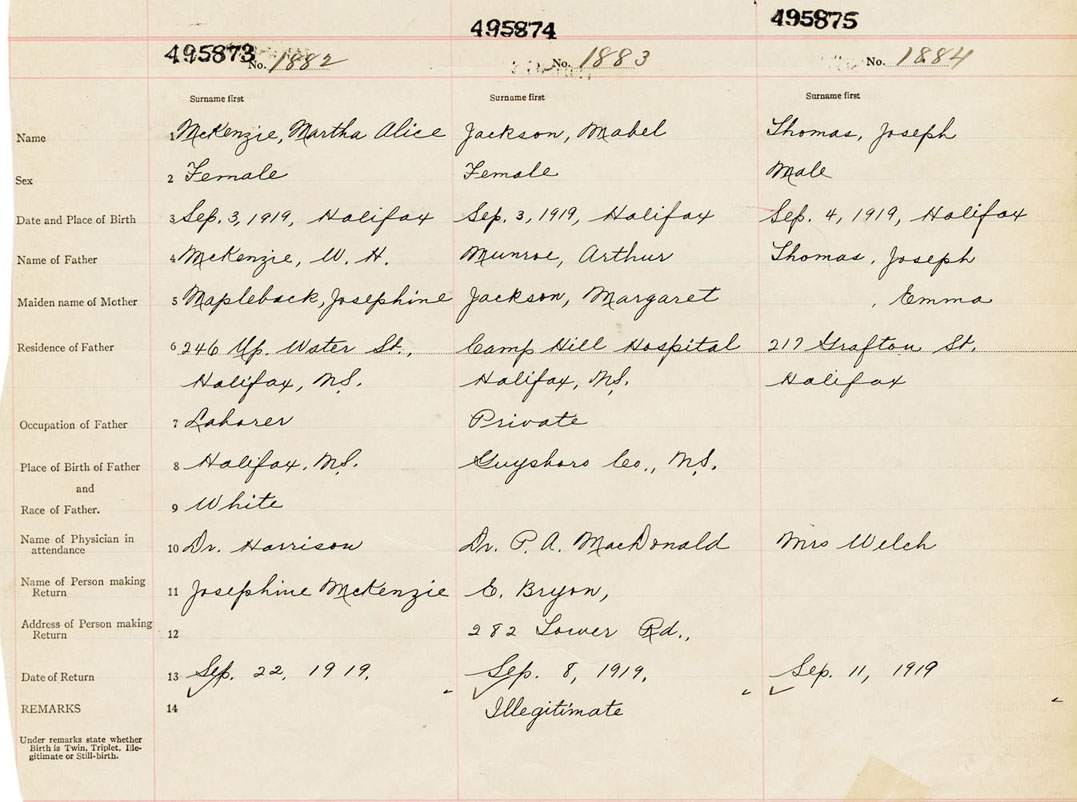 495873 495874 495875
No. 1882 No. 1883 No. 1884
Surname first Surname first Surname first
Name 1 McKenzie, Martha Alice Jackson, Mabel Thomas, Joseph
Sex 2 Female Female Male
Date and Place of Birth 3 Sep. 3, 1919, Halifax Sep. 3, 1919, Halifax Sep. 4, 1919, Halifax
Name of Father 4 McKenzie, W. H. Munroe, Arthur Thomas, Joseph
Maiden name of Mother 5 Mapleback, Josephine Jackson, Margaret , Emma
Residence of Father 6 246 Up. Water St., Camp Hill Hospital 217 Grafton St.
Halifax, N.S. Halifax, N.S. Halifax
Occupation of Father 7 Laborer Private
Place of Birth of Father 8 Halifax, N.S. Guysboro Co., N.S.
and
Race of Father. 9 White
Name of Physician in attendance 10 Dr. Harrison Dr. P. A. MacDonald Mrs Welch
Name of Person making Return 11 Josephine McKenzie E. Bryon,
Address of Person making Return 12 282 Lower Rd.,
Date of Return 13 Sep. 22, 1919. Sep. 8, 1919. Sep. 11, 1919
REMARKS 14 Illegitimate
Under remarks state whether
Birth is Twin, Triplet, Ille-
gitimate or Still-birth.